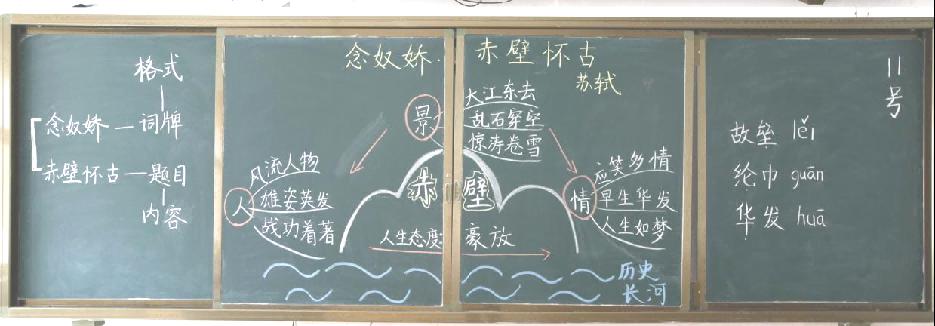 格式
念奴娇—词牌
赤壁怀古—题目
内容
念奴娇·赤壁怀古
苏轼
景
大江东去
乱石穿空
惊涛卷雪
人
风流人物
雄姿英发
战功着著
赤壁
情
应笑多情
早生华发
人生如梦
人生态度:豪放
历史
长河
11号
故垒 lěi
纶巾 guān
华发 huā